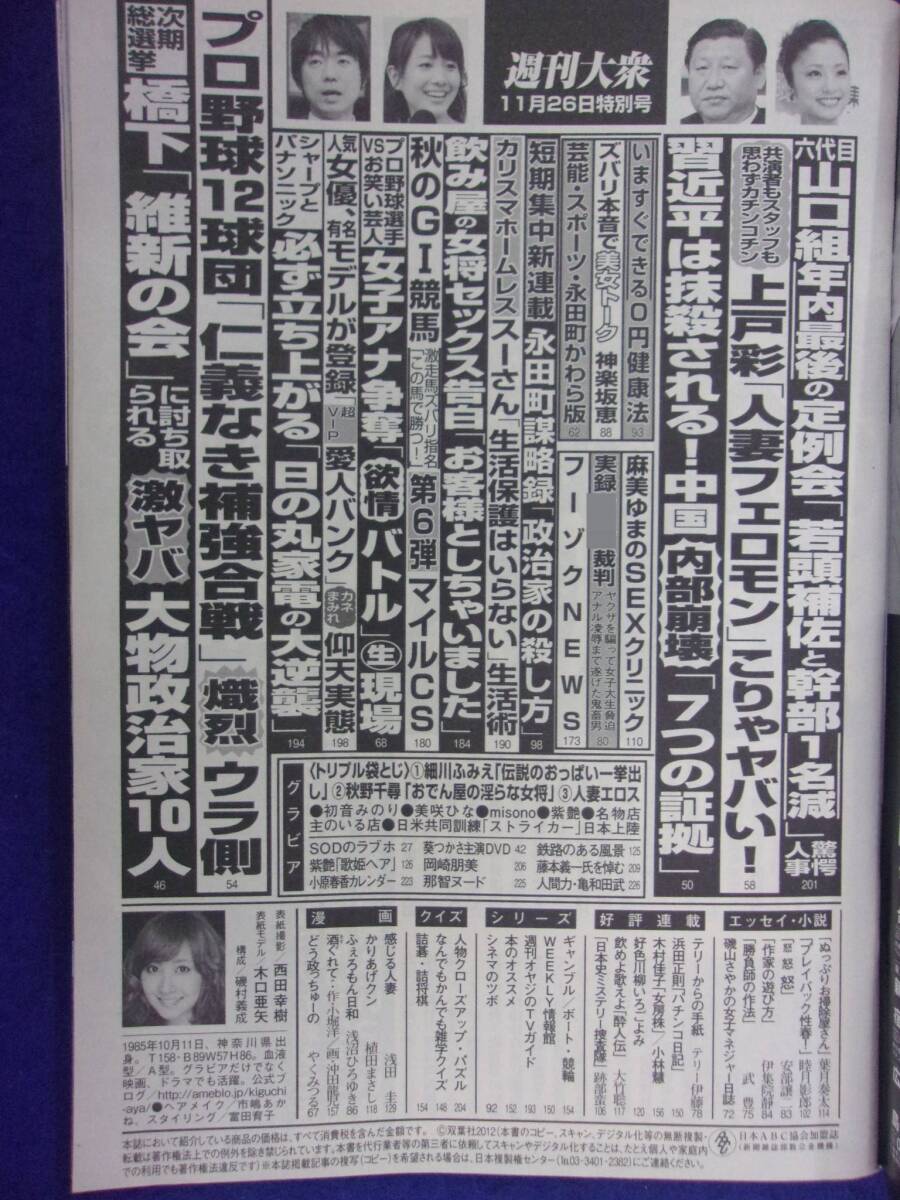 週刊大衆
11月26日特別号
六代目山口組年内最後の定例会「若頭補佐と幹部1名減」驚愕人事 201
共演者もスタッフも思わずカチンコチン
上戸彩「人妻フェロモン」こりゃヤバい! 58
習近平は抹殺される!中国内部崩壊「7つの証拠」 50
いますぐできる0円健康法 93
ズバリ本音で美女トーク 神楽坂恵 88
芸能・スポーツ・永田町かわら版 62
麻美ゆまのSEXクリニック 110
実録 裁判 ヤクザを騙って女子大生脅迫 アナル凌辱まで遂げた鬼畜男 80
フーゾクNEWS 173
短期集中新連載 永田町謀略録「政治家の殺し方」 98
カリスマホームレス スーさん「生活保護はいらない」生活術 190
飲み屋の女将セックス告白「お客様としちゃいました」 184
秋のGI競馬 激走馬ズバリ指名「この馬で勝つ!」 第6弾 マイルCS 180
プロ野球選手VSお笑い芸人 女子アナ争奪「欲情バトル」生現場 68
人気女優、有名モデルが登録「超VIP愛人バンク」カネまみれ仰天実態 198
シャープとパナソニック 必ず立ち上がる「日の丸家電の大逆襲」 194
プロ野球12球団「仁義なき補強合戦」熾烈ウラ側 54
次期総選挙 橋下「維新の会」に討ち取られる 激ヤバ 大物政治家10人 46
グラビア
〈トリプル袋とじ〉①細川ふみえ「伝説のおっぱい一挙出
し」②秋野千尋「おでん屋の淫らな女将」③人妻エロス
●初音みのり●美咲ひな●misono●紫艶●名物店
主のいる店●日米共同訓練「ストライカー」日本上陸
SODのラブホ 27 葵つかさ主演DVD 42 鉄路のある風景 125
紫艶「歌姫ヘア」 126 岡崎朋美 206 藤本義一氏を悼む 209
小原春香カレンダー 223 那智ヌード 225 人間力・亀和田武 226
エッセイ・小説
「ぬっぷりお掃除屋さん」 葉月奏太 114
「プレイバック性春!」 睦月影郎 102
「怒 怒 怒」 安部譲二 83
「作家の遊び方」 伊集院静 84
「勝負師の作法」 武 豊 75
磯山さやかの女子マネジャー日誌 72
好評連載
テリーからの手紙 テリー伊藤 78
浜田正則「パチンコ日記」 160
木村佳子「女房株」/小林慧 150
好色川柳いろごよみ 120
飲めよ歌えよ「酔人伝」 大竹聡 117
「日本史ミステリー捜査隊」 跡部蛮 106
シリーズ
ギャンブル/ボート・競輪 154
WEEKLY情報館 150
週刊オヤジのTVガイド 193
本のオススメ 152
シネマのツボ 92
クイズ
人物クローズアップ・パズル 204
なんでもかんでも雑学クイズ 148
詰碁・詰将棋 154
漫画
感じる人妻 浅田 圭 129
かりあげクン 植田まさし 118
ふぇろもん日和 浅沼ひろゆき 86
酒ぐれて…作・小堀洋/画・沖田龍児 157
どう政っちゅーの やくみつる 67
表紙撮影/西田幸樹
表紙モデル/木口亜矢
構成/磯村義成
1985年10月11日、神奈川県出
身。T158・B89W57H86。血液
型/A型。グラビアだけでなく
映画、ドラマでも活躍。公式ブ
ログ/http://ameblo.jp/kiguchi
-aya/●ヘアメイク/市嶋あか
ね、スタイリング/富田育子
本誌において紹介している商品の価格は、すべて消費税を含んだ金額です。 Ⓒ双葉社2012(本書のコピー、スキャン、デジタル化等の無断複製・
転載は著作権法上での例外を除き禁じられています。本書を代行業者等の第三者に依頼してスキャンやデジタル化することは、たとえ個人や家庭内
での利用でも著作権法違反です)※本誌掲載記事の複写(コピー)を希望される場合は、日本複製権センター(℡03-3401-2382)にご連絡ください。
日本ABC協会加盟誌
(新聞雑誌部数公査機構)